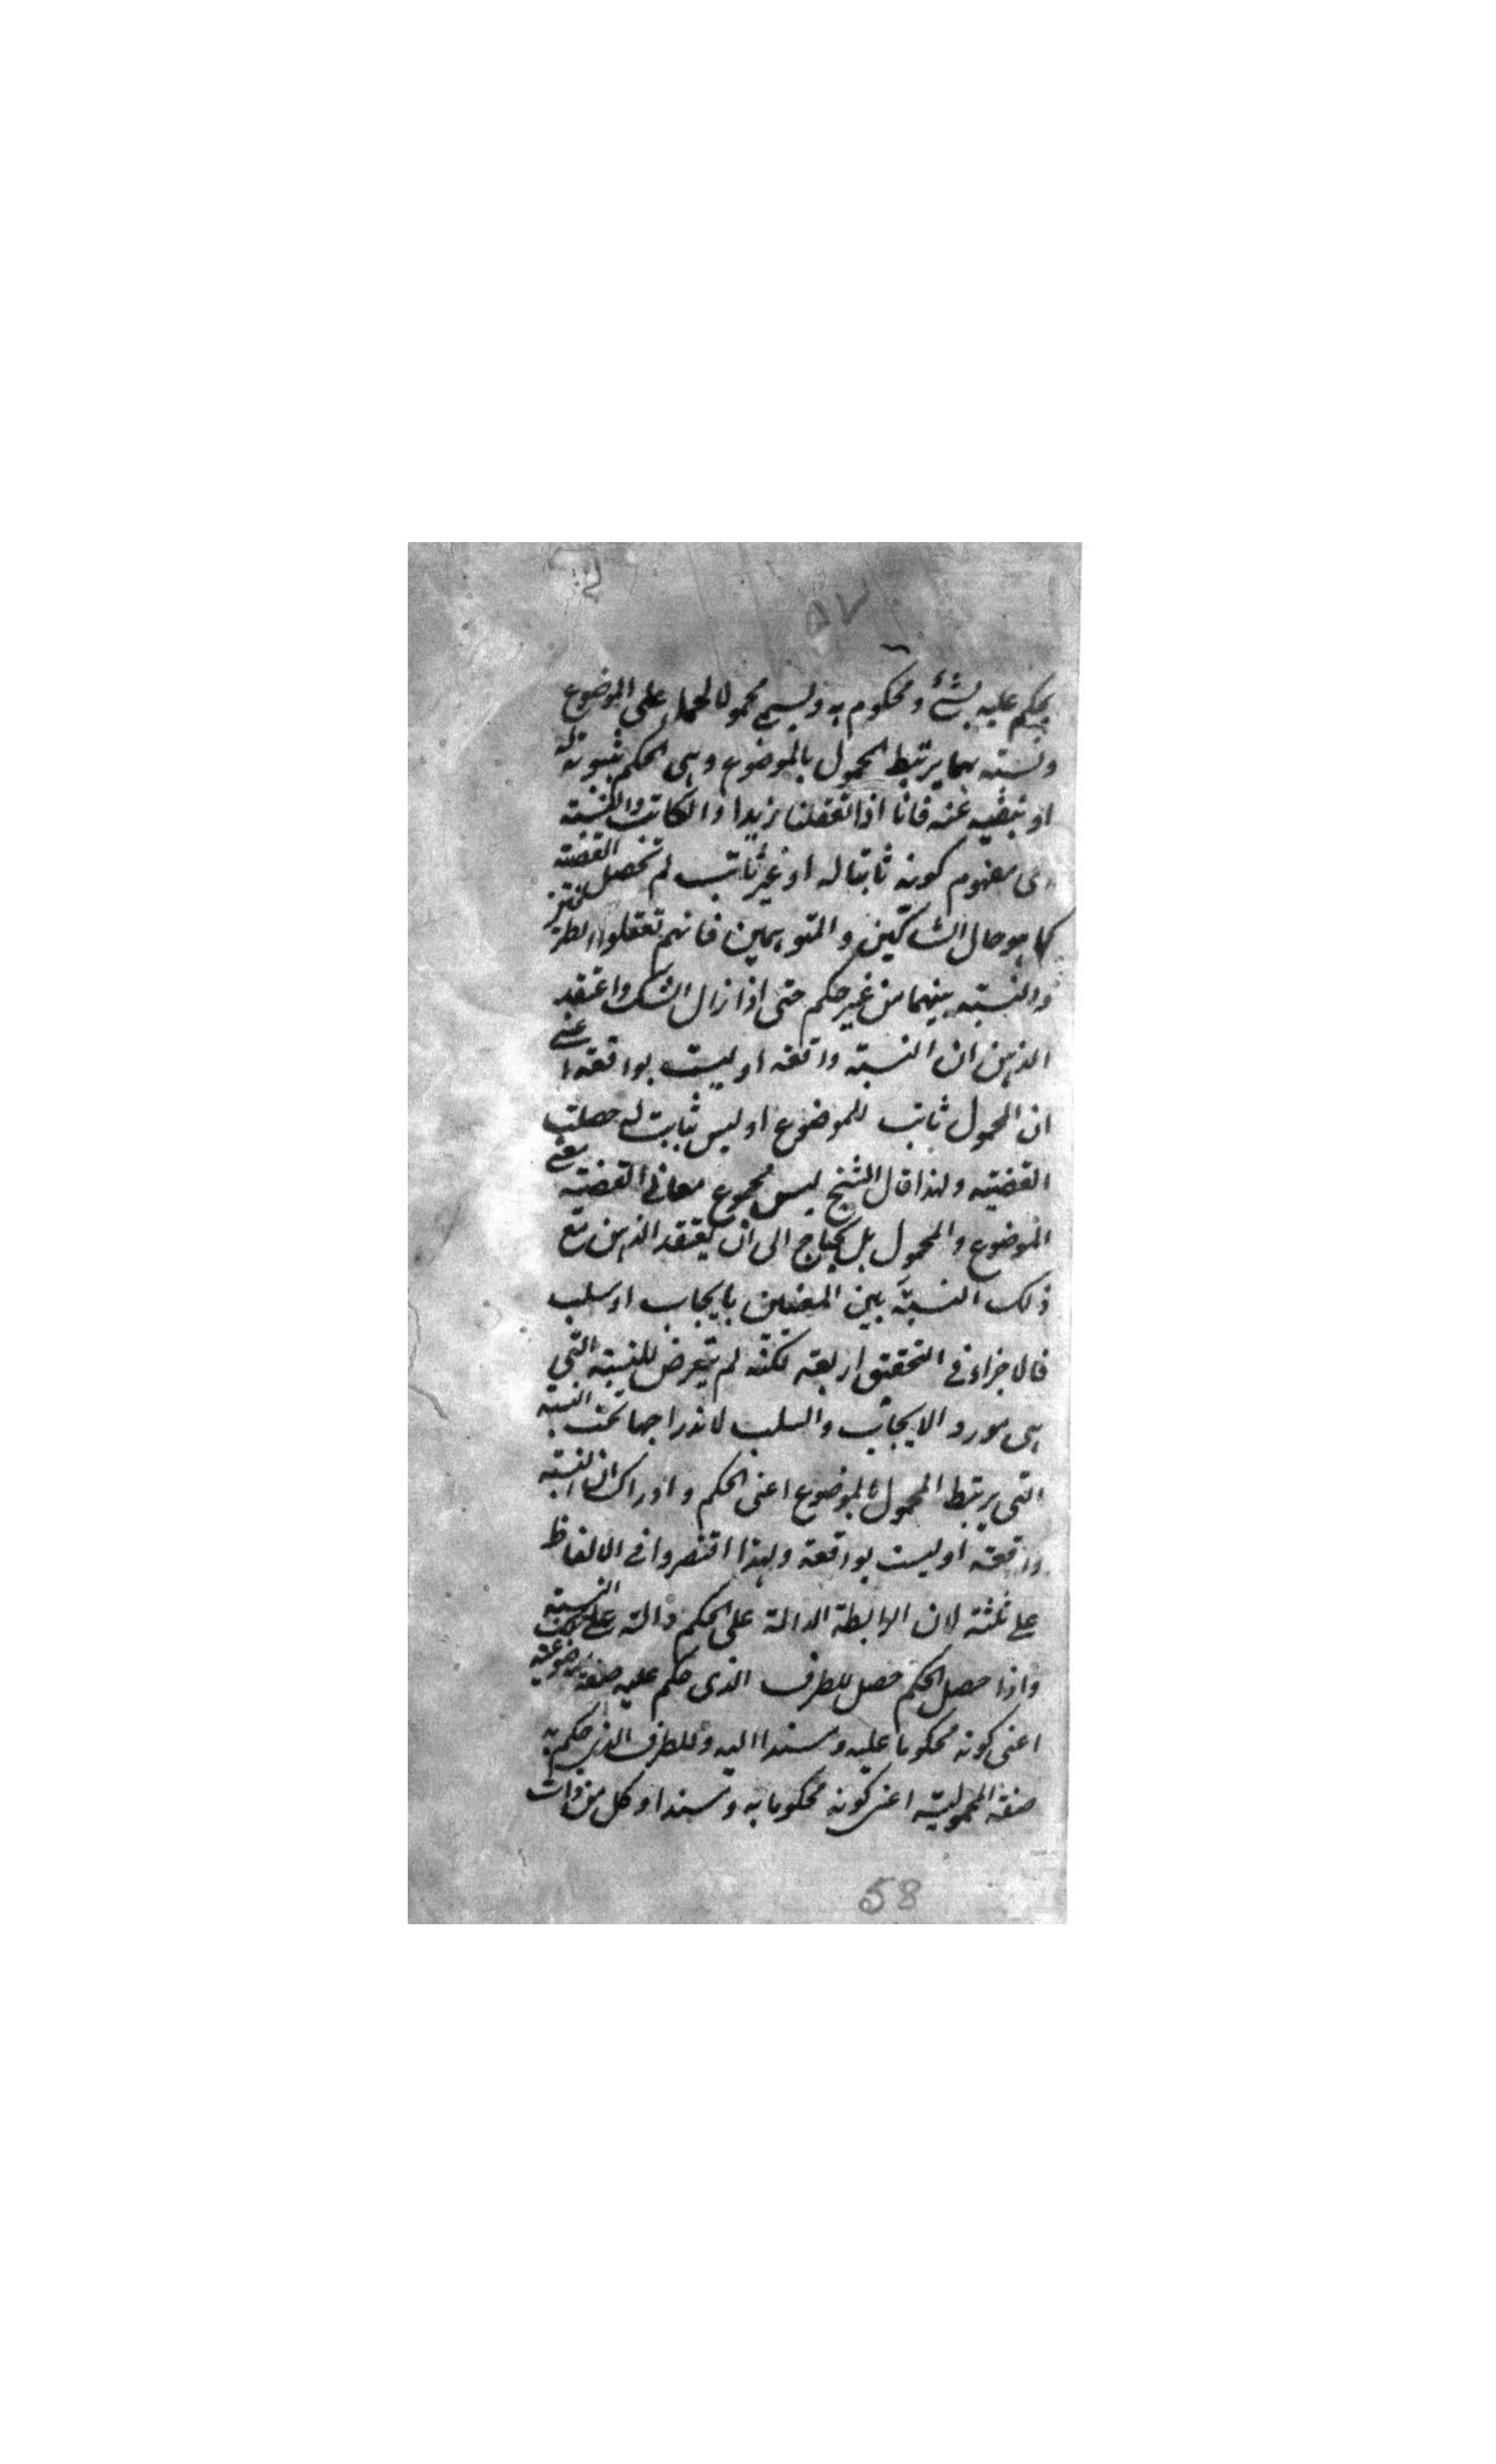 ٥٧
يحكم عليه بشئ ومحكوم به ويسمى محمولا لحمله على الموضوع
ونسبته بها يرتبط المحمول بالموضوع وهى الحكم بثبوته له
او بنفيه عنه فانا اذا تعقلنا زيدا والكاتب والنسبة
هى مفهوم كونه ثابتا له او غير ثابت لم تحصل القضية
كما هو حال الشاكين والمتوهمين فانهم تعقلوا الطرفين
والنسبة بينهما من غير حكم حتى اذا زال الشك واعتقد
الذهن ان النسبة واقعة او ليست بواقعة اعنى
ان المحمول ثابت للموضوع او ليس بثابت له حصلت
القضية ولهذا قال الشيخ ليس مجموع معانى القضية معنى
الموضوع والمحمول بل يحتاج الى ان يعتقد الذهن مع
ذلك النسبة بين المعنيين بايجاب او سلب
فالاجزاء فى التحقيق اربعة لكنه لم يتعرض للنسبة التى
هى مورد الايجاب والسلب لاندراجها تحت النسبة
التى يرتبط المحمول بالموضوع اعنى الحكم وادراك ان النسبة
واقعة او ليست بواقعة ولهذا اقتصروا فى الالفاظ
على ثلثة لان الرابطة الدالة على الحكم دالة على النسبة
واذا حصل الحكم حصل للطرف الذى حكم عليه صفة الموضوعية
اعنى كونه محكوما عليه ومسندا اليه وللطرف الذى حكم به
صفة المحمولية اعنى كونه محكوما به ومسندا وكل من ذات
58